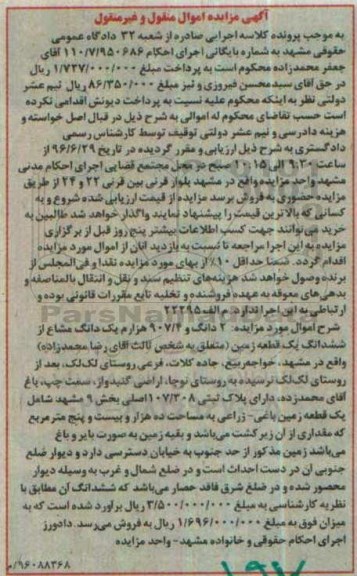 آگهی مزایده اموال منقول و غیرمنقول
به موجب پرونده کلاسه اجرایی صادره از شعبه ۳۲ دادگاه عمومی
حقوقی مشهد به شماره بایگانی اجرای احکام ۱۱۰/۷/۹۵۰۶۸۶ آقای
جعفر محمدزاده محکوم است به پرداخت مبلغ ۱/۷۲۷/۰۰۰/۰۰۰ ریال
در حق آقای سیدمحسن فیروزی و نیز مبلغ ۸۶/۳۵۰/۰۰۰ ریال نیم عشر
دولتی نظر به اینکه محکوم علیه نسبت به پرداخت دیونش اقدامی نکرده
است حسب تقاضای محکوم له اموالی به شرح ذیل در قبال اصل خواسته و
هزینه دادرسی و نیم عشر دولتی توقیف توسط کارشناس رسمی
دادگستری به شرح ذیل ارزیابی و مقرر گردیده در تاریخ ۹۶/۶/۲۹ از
ساعت ۹:۳۰ الی ۱۰:۱۵ صبح در محل مجتمع قضایی اجرای احکام مدنی
مشهد واحد مزایده واقع در مشهد بلوار قرنی بین قرنی ۲۲ و ۲۴ از طریق
مزایده حضوری به فروش برسد مزایده از قیمت ارزیابی شده شروع و به
کسانی که بالاترین قیمت را پیشنهاد نمایند واگذار خواهد شد طالبین به
خرید می‌توانند جهت کسب اطلاعات بیشتر پنج روز قبل از برگزاری
مزایده به این اجرا مراجعه تا نسبت به بازدید آنان از اموال مورد مزایده
اقدام گردد. ضمنا حداقل ۱۰٪ از بهای مورد مزایده نقدا و فی‌المجلس از
برنده وصول خواهد شد هزینه‌های تنظیم سند و نقل و انتقال بالمناصفه و
بدهی‌های معوقه به عهده فروشنده و تخلیه تابع مقررات قانونی بوده و
ارتباطی به این اجرا ندارد. م الف ۲۲۲۹۵
شرح اموال مورد مزایده: ۲ دانگ و ۹۰۷/۴ هزارم یک دانگ مشاع از
ششدانگ یک قطعه زمین (متعلق به شخص ثالث آقای رضا محمدزاده)
واقع در مشهد، خواجه‌ربیع، جاده کلات، فرعی روستای لک‌لک، بعد از
روستای لک‌لک نرسیده به روستای نوچا، اراضی کنیدواز، سمت چپ، باغ
آقای محمدزاده، دارای پلاک ثبتی ۱۰۷/۳۰۸ اصلی بخش ۹ مشهد شامل
یک قطعه زمین باغی-زراعی به مساحت ده هزار و بیست و پنج متر مربع
که مقداری از آن زیر کشت می‌باشد و بقیه زمین به صورت بایر و باغ
می‌باشد زمین مذکور از حد جنوب به خیابان دسترسی دارد و دیوار ضلع
جنوبی آن در دست احداث است و در ضلع شمال و غرب به وسیله دیوار
محصور شده و در ضلع شرق فاقد حصار می‌باشد که ششدانگ آن مطابق با
نظریه کارشناسی به مبلغ ۳/۵۰۰/۰۰۰/۰۰۰ ریال برآورد شده است که به
میزان فوق به مبلغ ۱/۶۹۶/۰۰۰/۰۰۰ ریال به فروش می‌رسد. دادورز
اجرای احکام حقوقی و خانواده مشهد - واحد مزایده
۹۶۰۸۸۳۶۸/م